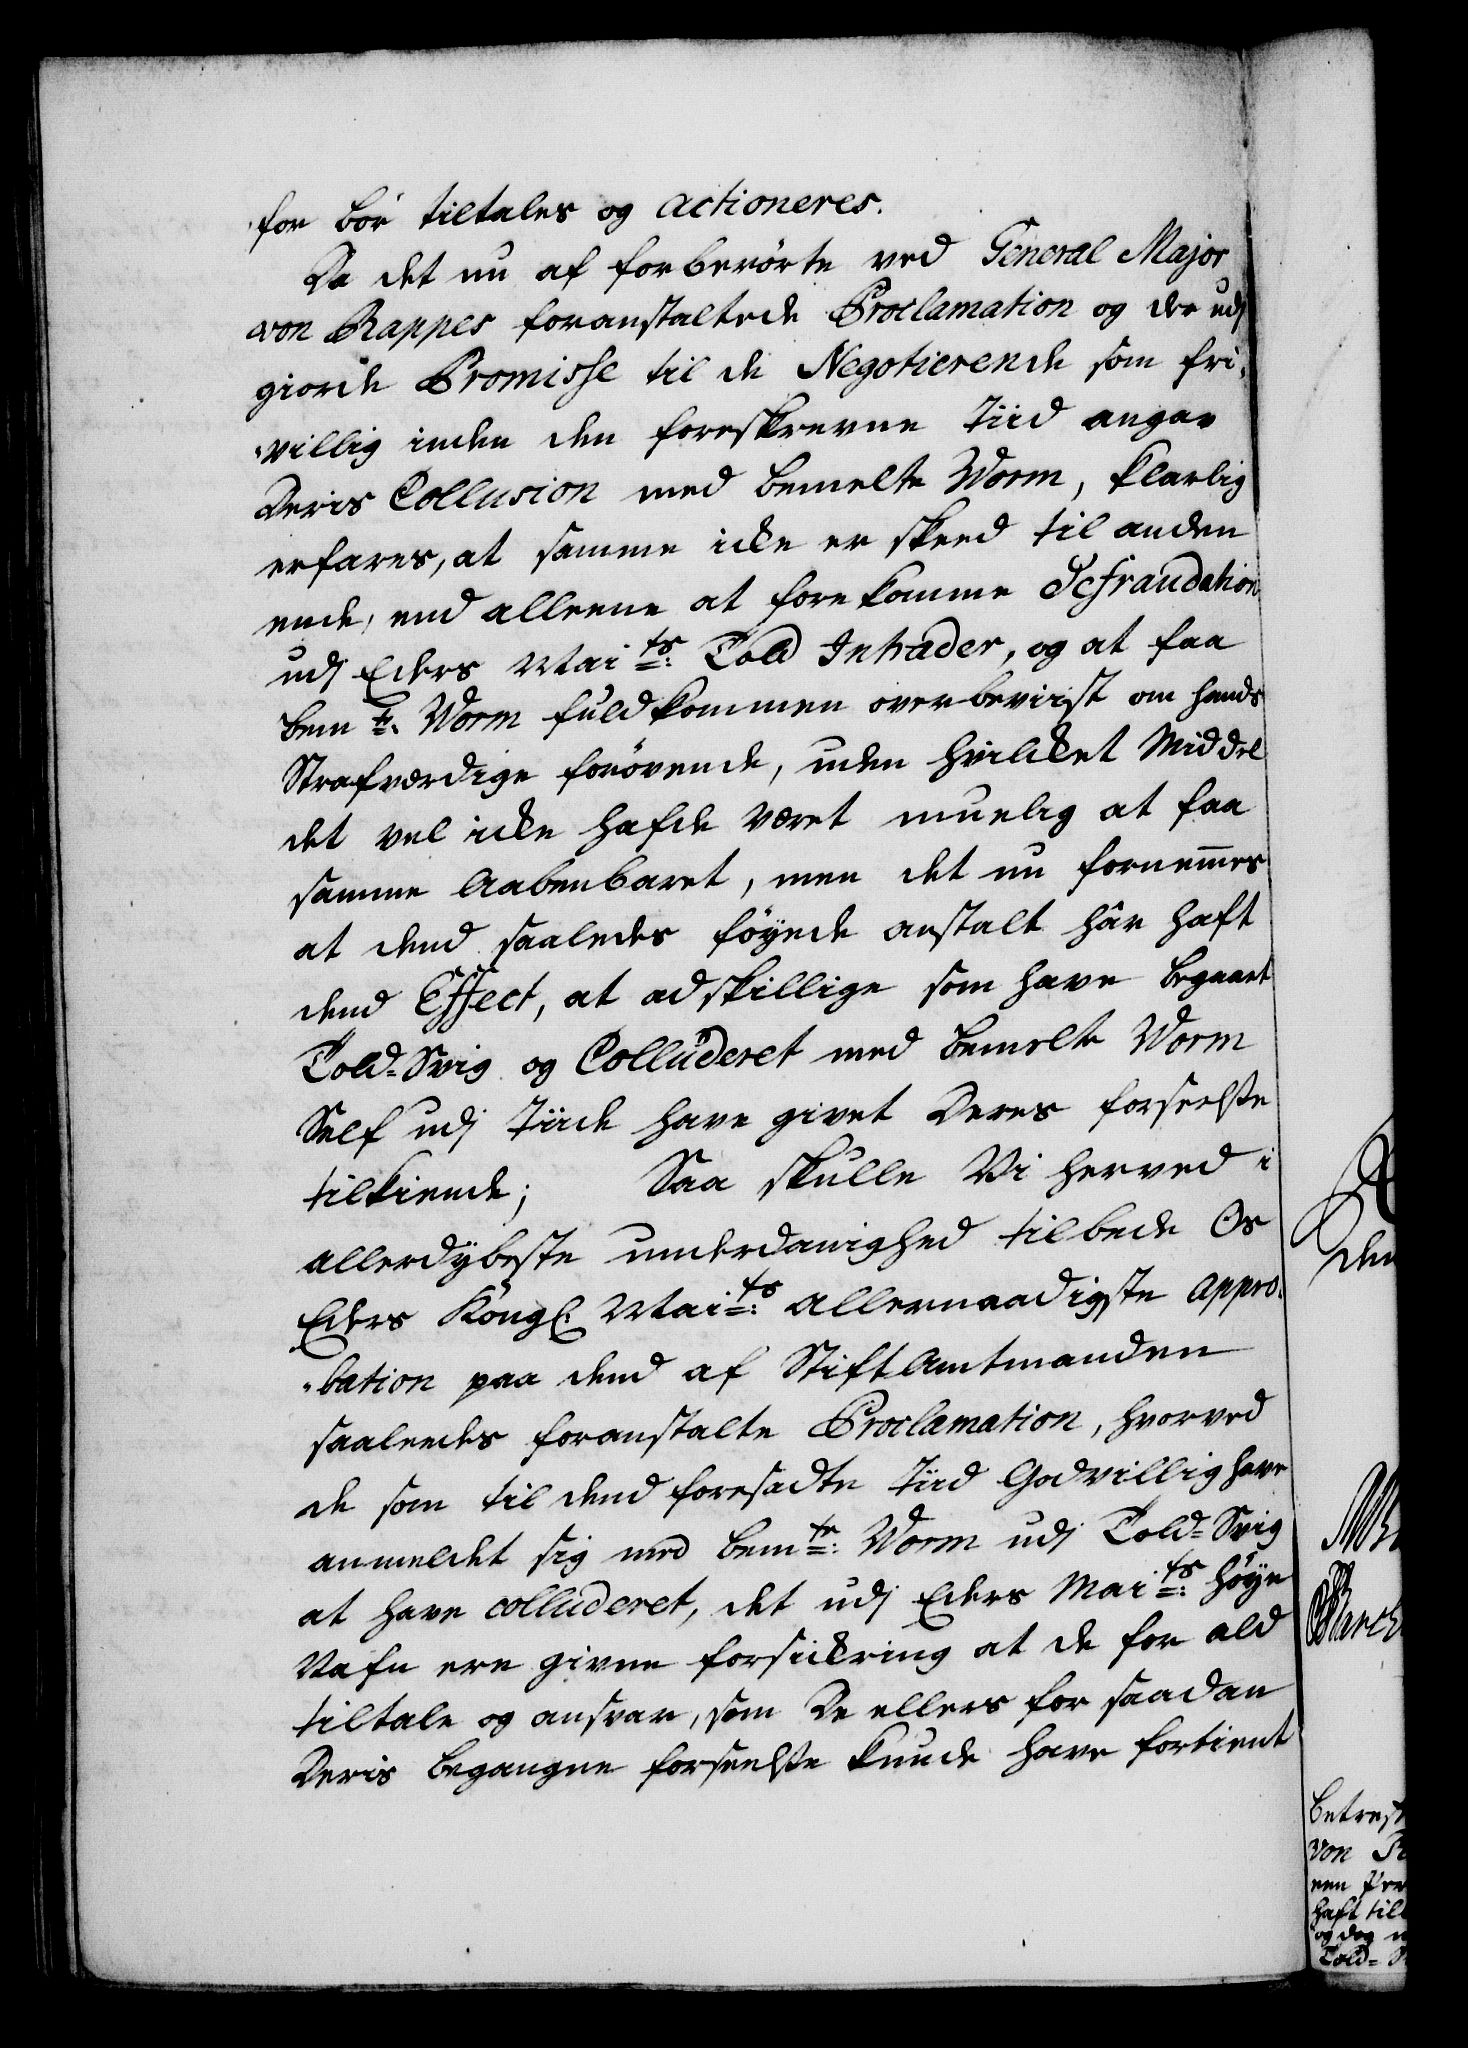 for bör tiltales og actioneres.
Da det nu af forberörte ved General Major
von Rappes foranstaltede Proclamation og der udj
giorde Promisse til de Negotierende som fri-
villig inden den foreskrevne Tiid angav
Deris Collusion med bemelte Worm, klarlig
erfares, at samme icke er skeed til anden
ende, end alleene at forekomme Defraudation
udj Eders Mai:ts Told Intrader, og at faa
bem:te Worm fuldkommen overbeviist om hands
Strafværdige forövende, uden hvilcket Middel
det vel icke hafde været muelig at faa
samme Aabenbaret, men det nu fornemmes
at dend saaledes föyede anstalt hâr haft
dend Effect, at adskillige som have begaaet
Told-Svig og Colluderet med bemelte Worm
Self udj Tiide have givet Deres forseelse
tilkiende; Saa skulle Vi herved i
allerdÿbeste underdanighed tilbede Os
Eders Köngl. Mai:ts allernaadigste appro-
bation paa dend af Stiftamtmanden
saaleedes foranstalte Proclamation, hvorved
de som til dend foresadte Tiid Godvillig have
anmeldet sig med bem:te Worm udj Told-Svig
at have colluderet, det udj Eders Mai:ts höÿe
Nafn ere givne forsickring at de for ald
tiltale og ansvar, som De ellers for saadan
Deris begangne forseelse kunde have fortient
den
betref
von
haft til
og dog
Told-